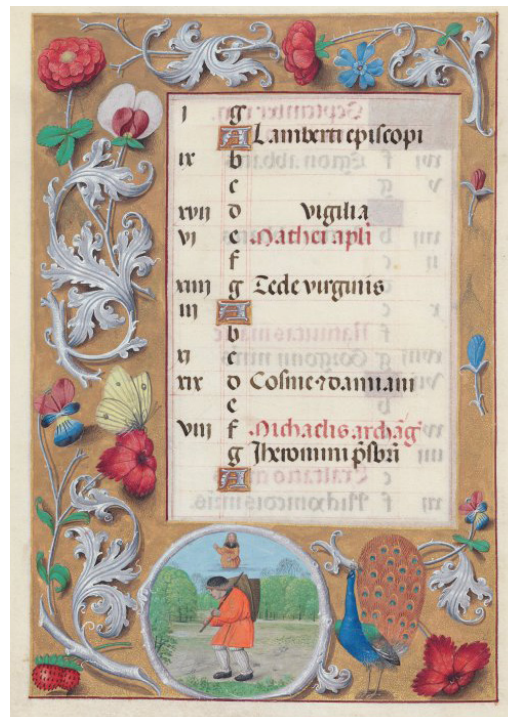 j g
A Lamberti episcopi
ix b
c
xvij d vigilia
vj e Mathei apli
f
xiiij g Tecle virginis
iij A
b
xj c
xix d Cosme ⁊ damiani
e
viij f Michaelis archāg
g Jheronimi p̄sbri
A